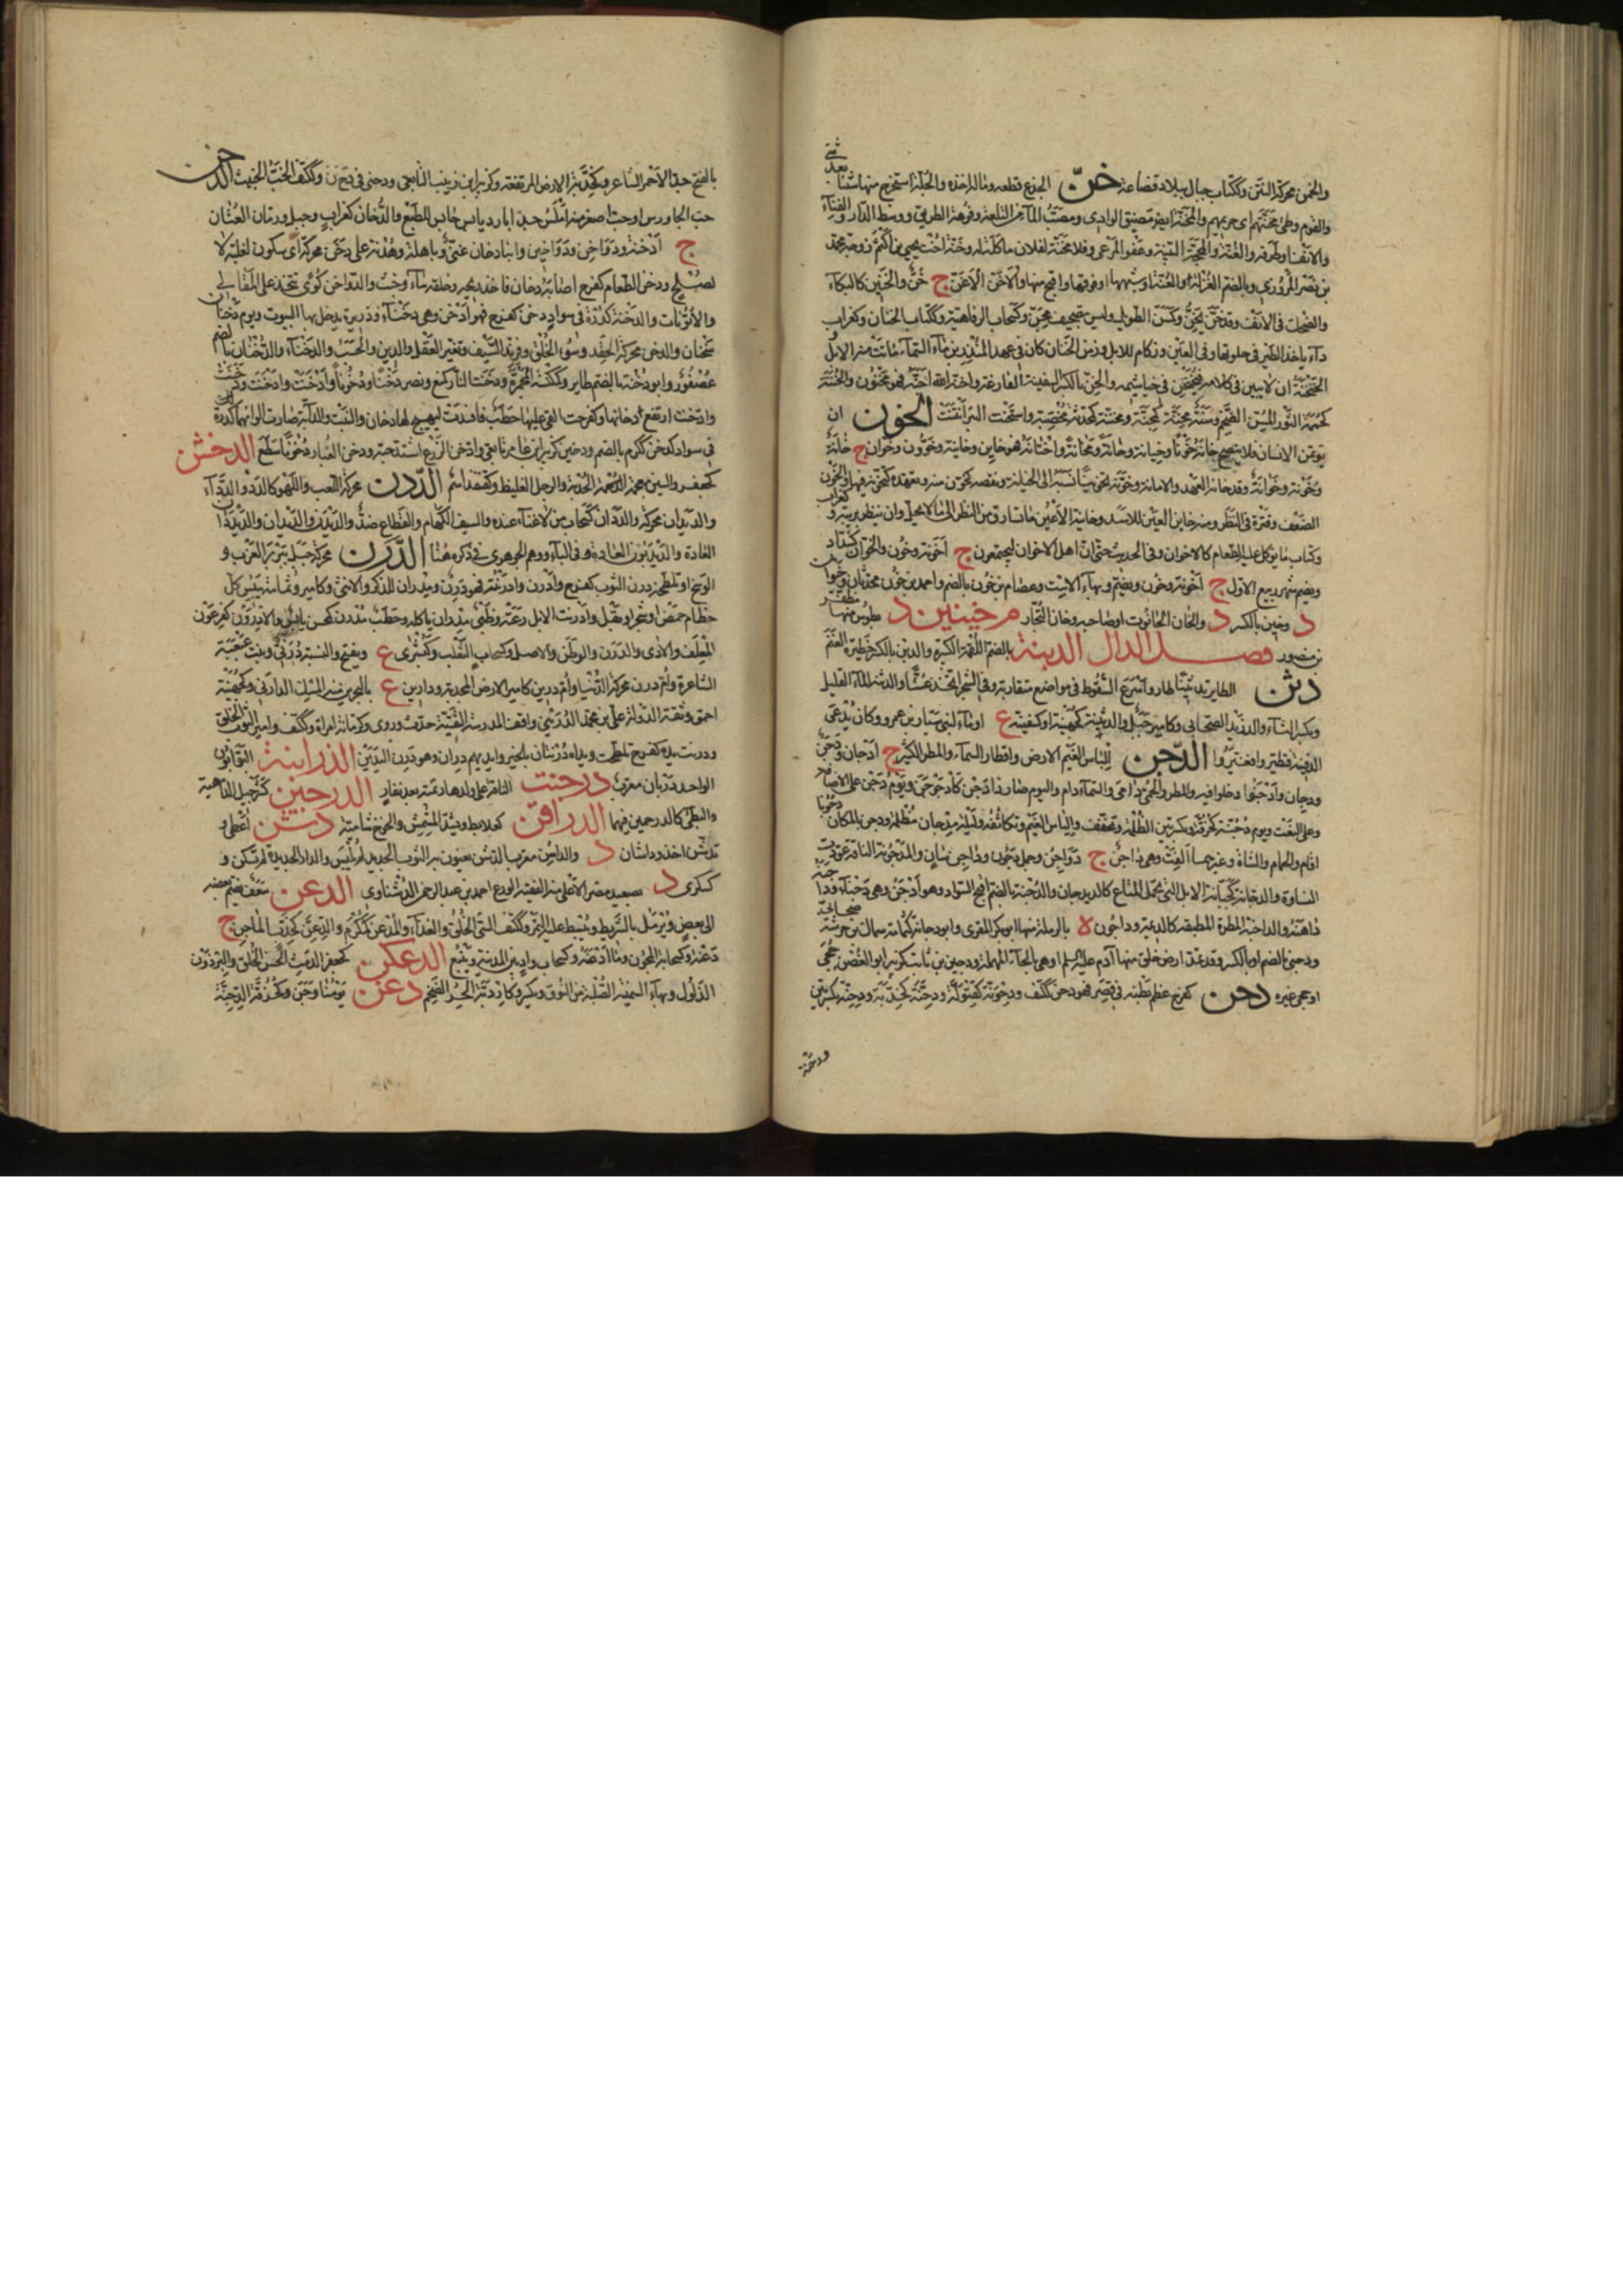 والخمن محركة النتن وككتاب جبال ببلاد قضاعة خنّ الجذع قطعه وماله اخذه والجلة استخرج منها شيئا بعد شئ
والقوم وطئ مخنتهم اى حريمهم والمخنة مضيق الوادى ومصب الماء من التلعة وفوهة الطريق ووسط الدار والفناء
والانف او طرفه والغنة والمحجة البينة وعفو المرعى وفلان مخنة لفلان ماكلة له وخنة اخت يحيى بن اكثم زوجة محمد
بن نصر المروزى وبالضم الغنة او شبهها او فوقها واقبح منها والاخن الاغن ج خن والخنين كالبكاء
والضحك فى الانف وقد خن يخن وكسن الطويل وليس تصحيف مخن وكسحاب الرفاهية وككتاب الختان وكغراب
داء ياخذ الطير فى حلوقها وفى العين وزكام للابل وزمن الخنان كان فى عهد المنذر بن ماء السماء ماتت منه الابل
الخنخنة ان لا يبين فى كلامه فيخنخن فى خياشيمه والخن بالكسر السفينة الفارغة واخنه الله اجنه فهو مخنون والخننة
الثور المسن الضخم وسنة مخنة مخصبة واستخنت البئر انتنت الخون ان
يؤتمن الانسان فلا ينصح خانه خونا وخيانة وخانة ومخانة واختانه فهو خاين وخاينة وخوون وخوان ج خانة
وخونة وقد خانه العهد والامانة وخونه تخوينا نسبه الى الخيانة ونقصه كتخون منه وتعهده كتخونه فيهما والخون
الضعف وفترة فى النظر ومنه خاين العين للاسد وخاينة الاعين ما تسارق من النظر الى ما لا يحل وان ينظر بريبة وكغراب
وكتاب ما يوكل عليه الطعام كالاخوان وفى الحديث حتى ان اهل الاخوان ليجتمعون ج اخونة وخون والخوان كشداد
ويضم شهر ربيع الاول ج اخونة وخون ويضم وبهاء الاست وعصام بن خون بالضم واحمد بن خون محدثان
د وخين بالكسر د والخان الحانوت او صاحبه وخان التجار م خينين د بطوس منها مظفر
بن منصور فصـــل الدال الدبنة بالضم اللقمة الكبيرة والدبن بالكسر حظيرة الغنم
دثن الطاير تدثينا طار واسرع السقوط فى مواضع متقاربة وفى الشجر اتخذ عشا والدثنة الماء القليل
وبكسر الثاء والد زيد الصحابى وكامير جبل والدثينة كجهينة او كسفينة ع او ماء لبنى سيار بن عمرو وكان يدعى
الدفينة فتطيروا فغيروا الدجن الباس الغيم الارض واقطار السماء والمطر الكثير ج ادجان ودجون
ودجان وادجنوا دخلوا فيه والمطر والحمى داما والسماء دام مطرها واليوم صار ذا دجن كادجوجن ويوم دجن على الاضافة
وعلى النعت ويوم دجنة كحزقة وبكسرتين الظلمة وتخفف والباس الغيم وتكاثفه وليلة مدجان مظلمة ودجن بالمكان دجونا
اقام والحمام والشاة وغيرهما الفت وهى داجن ج دواجن وجمل دجون وداجن سان والمدجونة الناقة عودت
السناوة والدجانة كجبانة الابل التى تحمل المتاع كالديدجان والدجنة بالضم اقبح السواد وهو ادجن وهى دجناء وداجنه
داهنه والداجنة المطرة المطبقة كالديمة وداجون ة بالرملة منها ابو بكر المقرى وابو دجانة كثمامة سماك بن خرشة صحابى
ودجنى بالضم او بالكسر وقد يمد ارض خلق منها آدم عليه السلم او هى بالحاء المهملة ودجين بن ثابت كزبير ابو الغصن جحى
او جحى غيره دحن كفرح عظم بطنه فى قصر فهو دحن ككتف ودحونة ودحنة كخدبة ودحنة بكسرتين
ودحنة
بالفتح حبة الاخمر الشاعر وكخدبة الارض المرتفعة وكزبير ابن زبيب التابعى ودحنى فى دجن وككتف الخب الخبيث الدخن
حب الجاورس او حب اصغر منه املس جدا بارد يابس حابس للطبع والدخان كغراب وجبل ورمان العثان
ج ادخنة ودواخن ودواخين وابنا دخان غنى وباهلة وهدنة على دخن محركة اى سكون لعلة لا
لصلح ودخن الطعام كفرح اصابه دخان فاخذ ريحه وخلقه ساء وخبث والدواخن كوى تتخذ على المقالى
والاتونات والدخنة كدرة فى سواد دخن كفرح فهو ادخن وهى دخناء وذريرة يدخن بها البيوت ويوم دخنان
سخنان والدخن محركة الحقد وسوء الخلق وفرند السيف وتغير العقل والدين والحسب والدخناء والدخنان بالضم
عصفور وابو دخنة بالضم طاير وكمكنسة المجمرة ودخنت النار كمنع ونصر دخنا ودخونا وادخنت وادخنت
وادخنت ارتفع دخانها وكفرحت القى عليها حطب فافسدت ليهيج لها دخان والنبت والدابة صارت الوانهما كدرة
فى سواد كدخن ككرم بالضم ودخين كزبير ابن عامر تابعى وادخن الزرع اشتد حبه ودخن الغبار دخونا سطع الدخشن
كجعفر والسين معجمة الدرهمة الحدبة والرجل الغليظ وكقنفذ اسم الددن محركة اللعب واللهو كالدد والددا
والديدان محركة والددان كسحاب من لا غناء عنده والسيف الكهام والقطاع ضد والديدن والديدان والديدان
العادة والديدبون اللهو فى الباء ووهم الجوهرى فى ذكره هنا الدرن محركة جبل ببربر الغرب و
الوسخ او تلطخه درن الثوب كفرح وادرن وادرنته فهو درن ومدران الذكر والانثى وكامير وثمامة يبيس كل
حطام حمض او شجر او بقل وادرنت الابل رعته وظبى مدران ياكله وحطب مدرن كمحسن يابس والادرون كفرعون
المعلف والآرى والدرن والوطن والاصل وكسحاب الثعلب وكسكرى ع ويفتح والنسبة درنى وبنت عبعبة
الشاعرة وام درن محركة الدنيا وام درين كامير الارض المجدبة ودارين ع بالبحرين منه المسك الدارينى وكجهينة
احمق وثقة الدولة على بن محمد الدرينى واقف المدرسة الثقتية حدث وروى وكرمانة امراة وككتف وامير الثوب الخلق
ودرنت يده كفرح تلطخت ويداه درنتان بالخير وايديهم دران وهو درن اليدين الدرابنة البوابون
الواحد دربان معرب درجنت الناقة على ولدها رئمته بعد نفار الدرحمين كشرحبيل الداهية
والبطئ كالدرحمين فيهما الدراقن كعلابط ويشد المشمش والخوخ شامية دشن اعطى و
تدشن اخذ وداشان د والداشن معرب الدشن يعنون به الثوب الجديد لم يلبس والدار الجديدة لم تسكن و
كسكرى د بصعيد مصر الاعلى منه الفقيه الورع احمد بن عبد الرحمن الدشناوى الدعن سعف يضم بعضه
الى بعض ويرمل بالشريط ويبسط عليه التمر وككتف السئ الخلق والغذاء والمدعن كمكرم والدعن كخدب الماجن ج
دعنة وكسحابة المجون وما ادعنه وكسحاب واد بين المدينة وينبع الدعكن كجعفر الدمث الحسن الخلق والبرذون
الذلول وبهاء السمينة الصلبة من النوق ويكسر وكاردبة الحر الضخم دغن يومنا دجن وكحزقة الدجنة